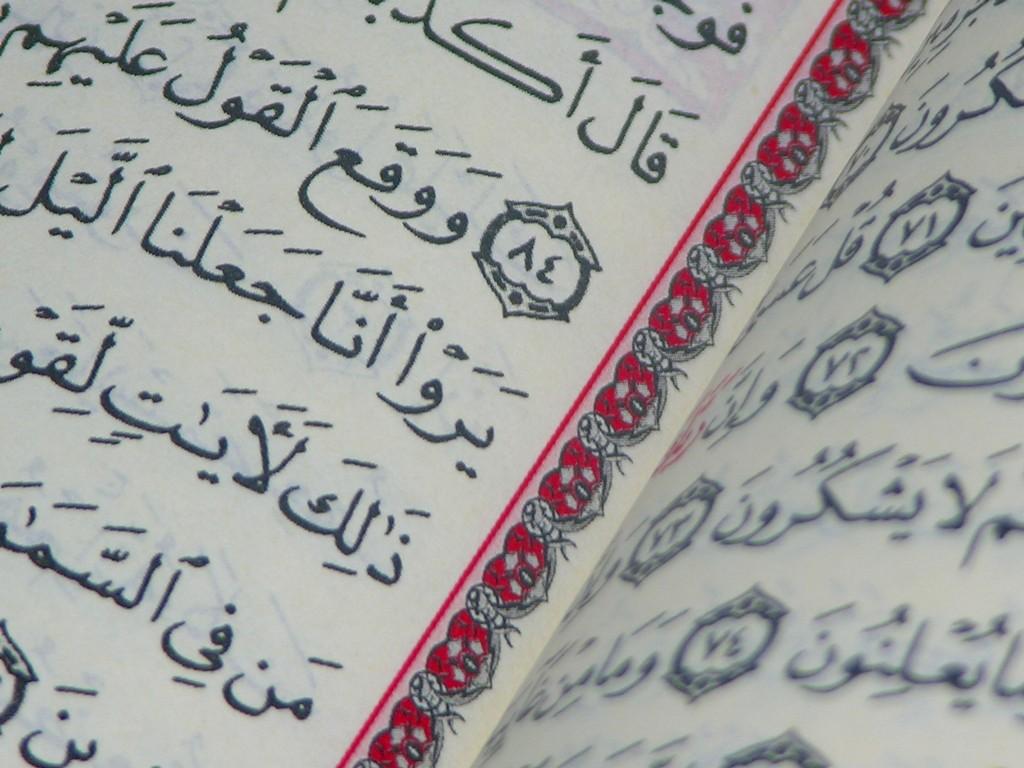 كُرُونَ
ينَ ٧١ قُلْ عَسَ
ونَ ٧٢ وَإِنَّ
هُمْ لَا يَشْكُرُونَ ٧٣
مَا يُعْلِنُونَ ٧٤ وَمَا مِنْ
فَوْ
قَالَ أَكَذَّبْ
٨٤ وَوَقَعَ ٱلْقَوْلُ عَلَيْهِم
يَرَوْا۟ أَنَّا جَعَلْنَا ٱلَّيْلَ
ذَٰلِكَ لَـَٔايَـٰتٍ لِّقَوْ
مَن فِى ٱلسَّمَـٰ